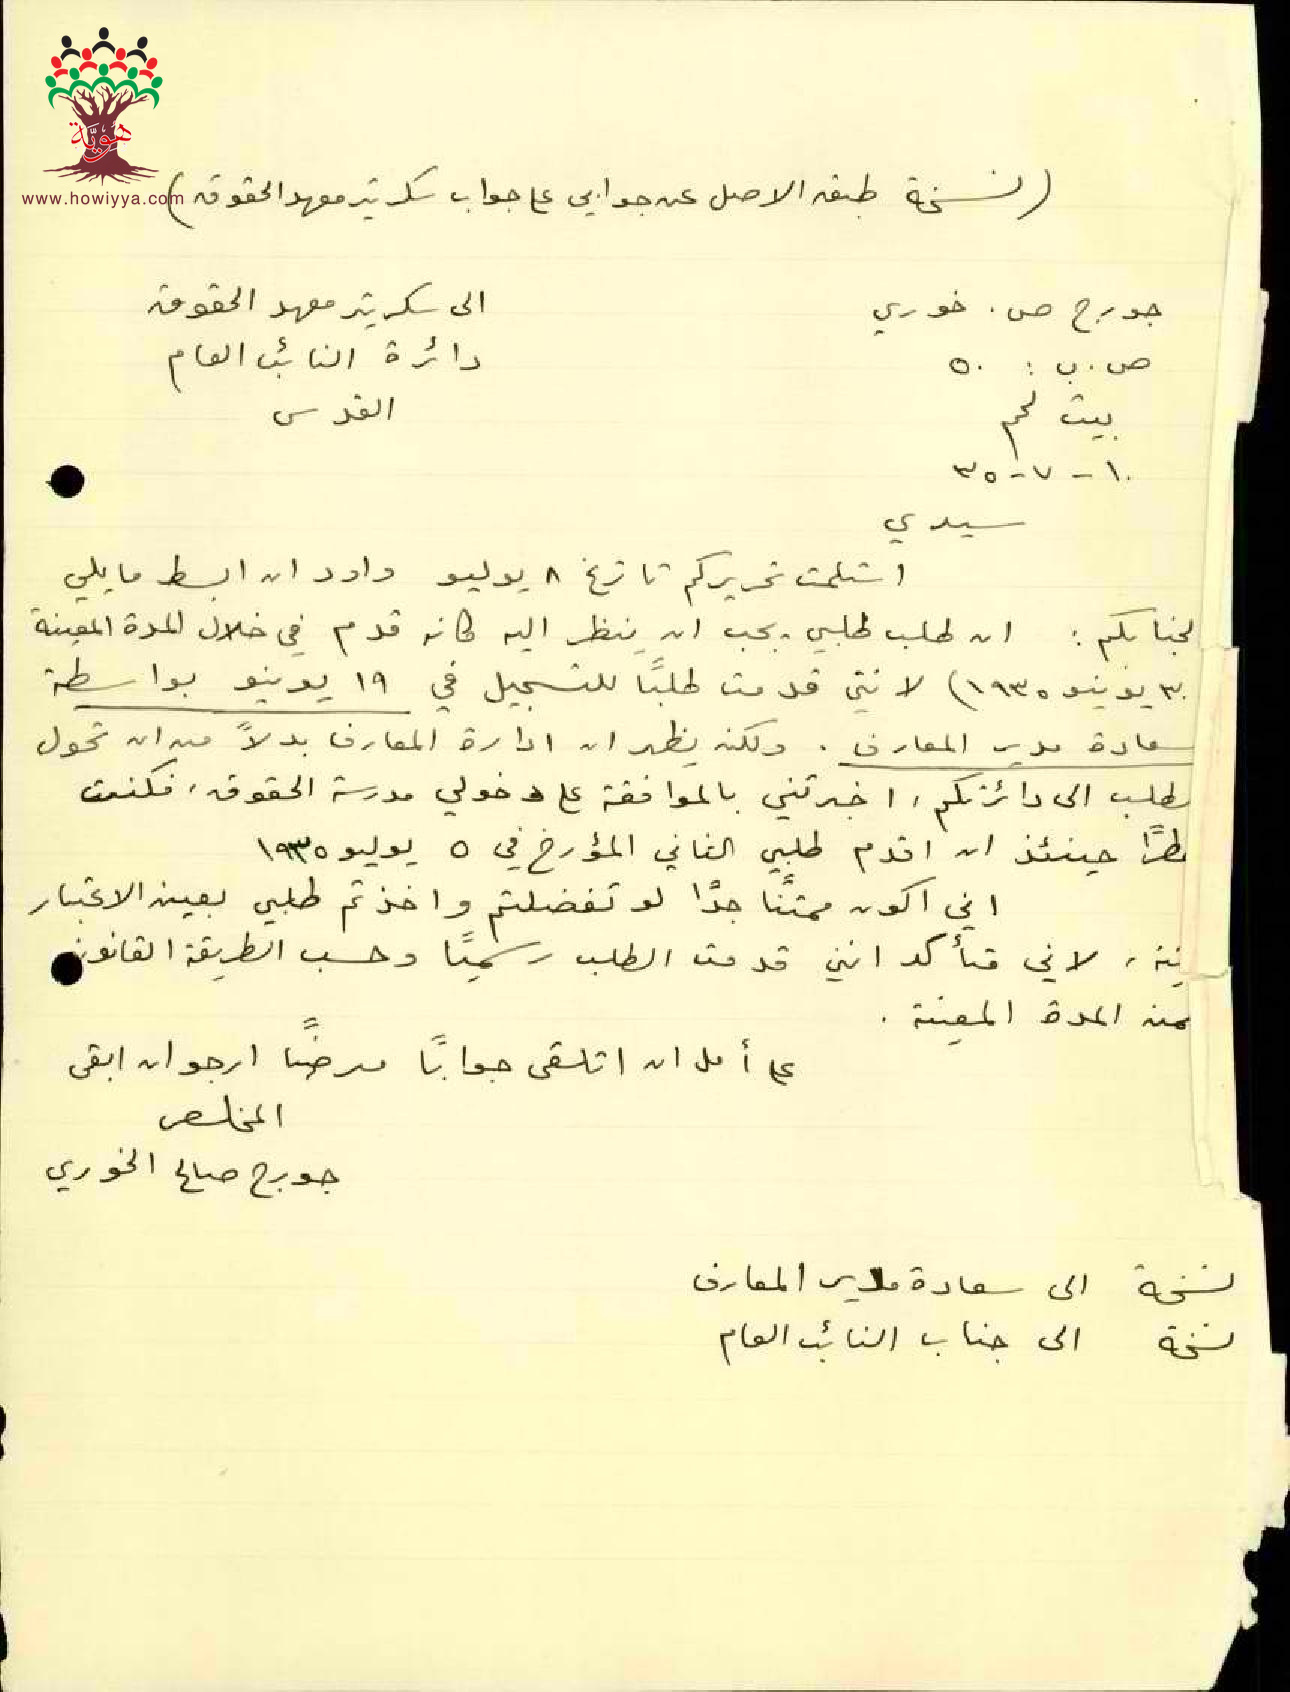 هوية
www.howiyya.com
(نسخة طبق الاصل عن جوابي على جواب سكرتير معهد الحقوق)
جورج ص. خوري
ص.ب: ٥٠
بيت لحم
١٠-٧-٣٥
الى سكرتير معهد الحقوق
دائرة النائب العام
القدس
سيدي
استلمت تحريركم تاريخ ٨ يوليو واود ان ابسط ما يلي
لجنابكم: ان طلب طلبي يجب ان ينظر اليه كانه قدم في خلال المدة المعينة
٣٠ يونيو ١٩٣٥) لانني قدمت طلبًا للتسجيل في ١٩ يونيو بواسطة
سعادة مدير المعارف. ولكن يظهر ان ادارة المعارف بدلاً من ان تحول
طلب الى دائرتكم، اخبرتني بالموافقة على دخولي مدرسة الحقوق، فكنت
طرًا حينئذ ان اقدم طلبي الثاني المؤرخ في ٥ يوليو ١٩٣٥
اني اكون ممتنًا جدًا لو تفضلتم واخذتم طلبي بعين الاعتبار
لاني متأكد انني قدمت الطلب رسميًا وحسب الطريقة القانونية
ضمن المدة المعينة.
على أمل ان اتلقى جوابًا مرضيًا ارجو ان ابقى
المخلص
جورج صالح الخوري
نسخة الى سعادة مدير المعارف
نسخة الى جناب النائب العام